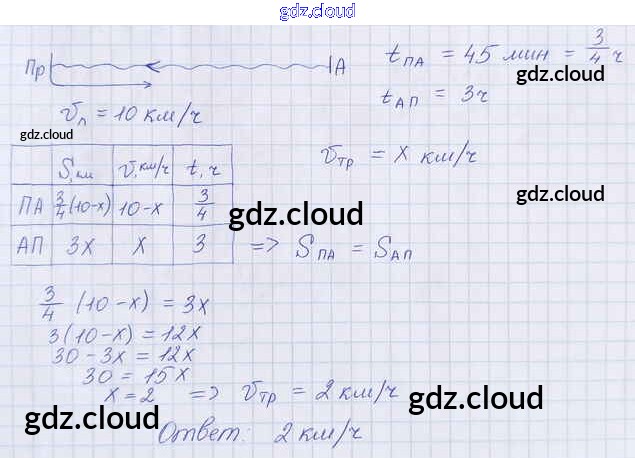 gdz.cloud
Пр A t_ПА = 45 мин = 3/4 ч
gdz.cloud
t_АП = 3ч
v_л = 10 км/ч
gdz.cloud
v_тр = x км/ч
S, км v, км/ч t, ч
ПА 3/4(10-x) 10-x 3/4
gdz.cloud
gdz.cloud
АП 3x x 3 => S_ПА = S_АП
3/4 (10-x) = 3x
3(10-x) = 12x
30-3x = 12x
30 = 15x
x = 2 => v_тр = 2 км/ч
gdz.cloud
gdz.cloud
Ответ: 2 км/ч